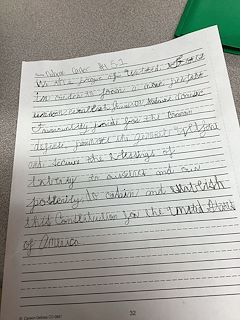 We the people of the United States
in order to form a more perfect
union establish justice insure domestic
tranquility provide for the common
defense promote the general welfare
and secure the blessings of
liberty to ourselves and our
posterity do ordain and establish
this Constitution for the United States
of America
32